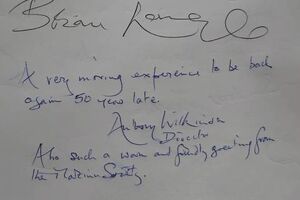 Brian
A very moving experience to be back
again 50 years late.
Antony Wilkinson
Director
Also such a warm and friendly greeting from
the Society.